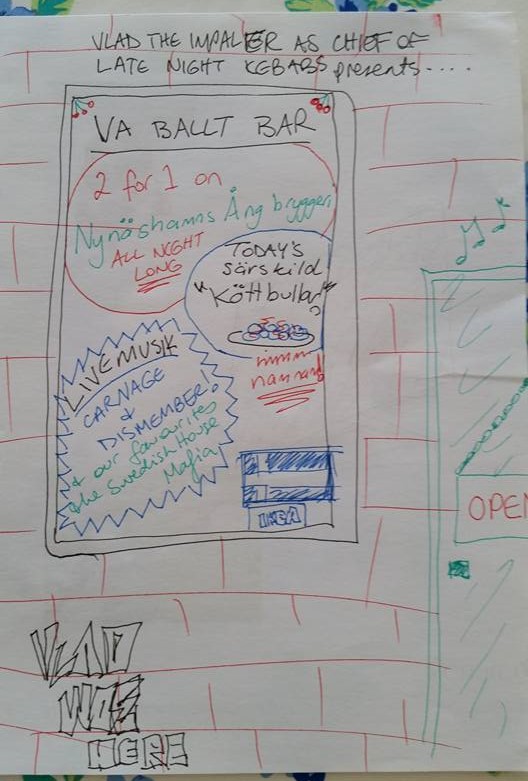 VLAD THE IMPALER AS CHIEF OF
LATE NIGHT KEBABS presents....
VA BALLT BAR
2 for 1 on
Nynäshamns Ång bryggeri
ALL NIGHT
LONG
TODAY'S
särskild
"Köttbullar"
mmm
nam nam!
LIVE MUSIK
CARNAGE
&
DISMEMBER!
+ our favourites
the Swedish House
Mafia
IKEA
OPEN
VLAD
WOZ
HERE